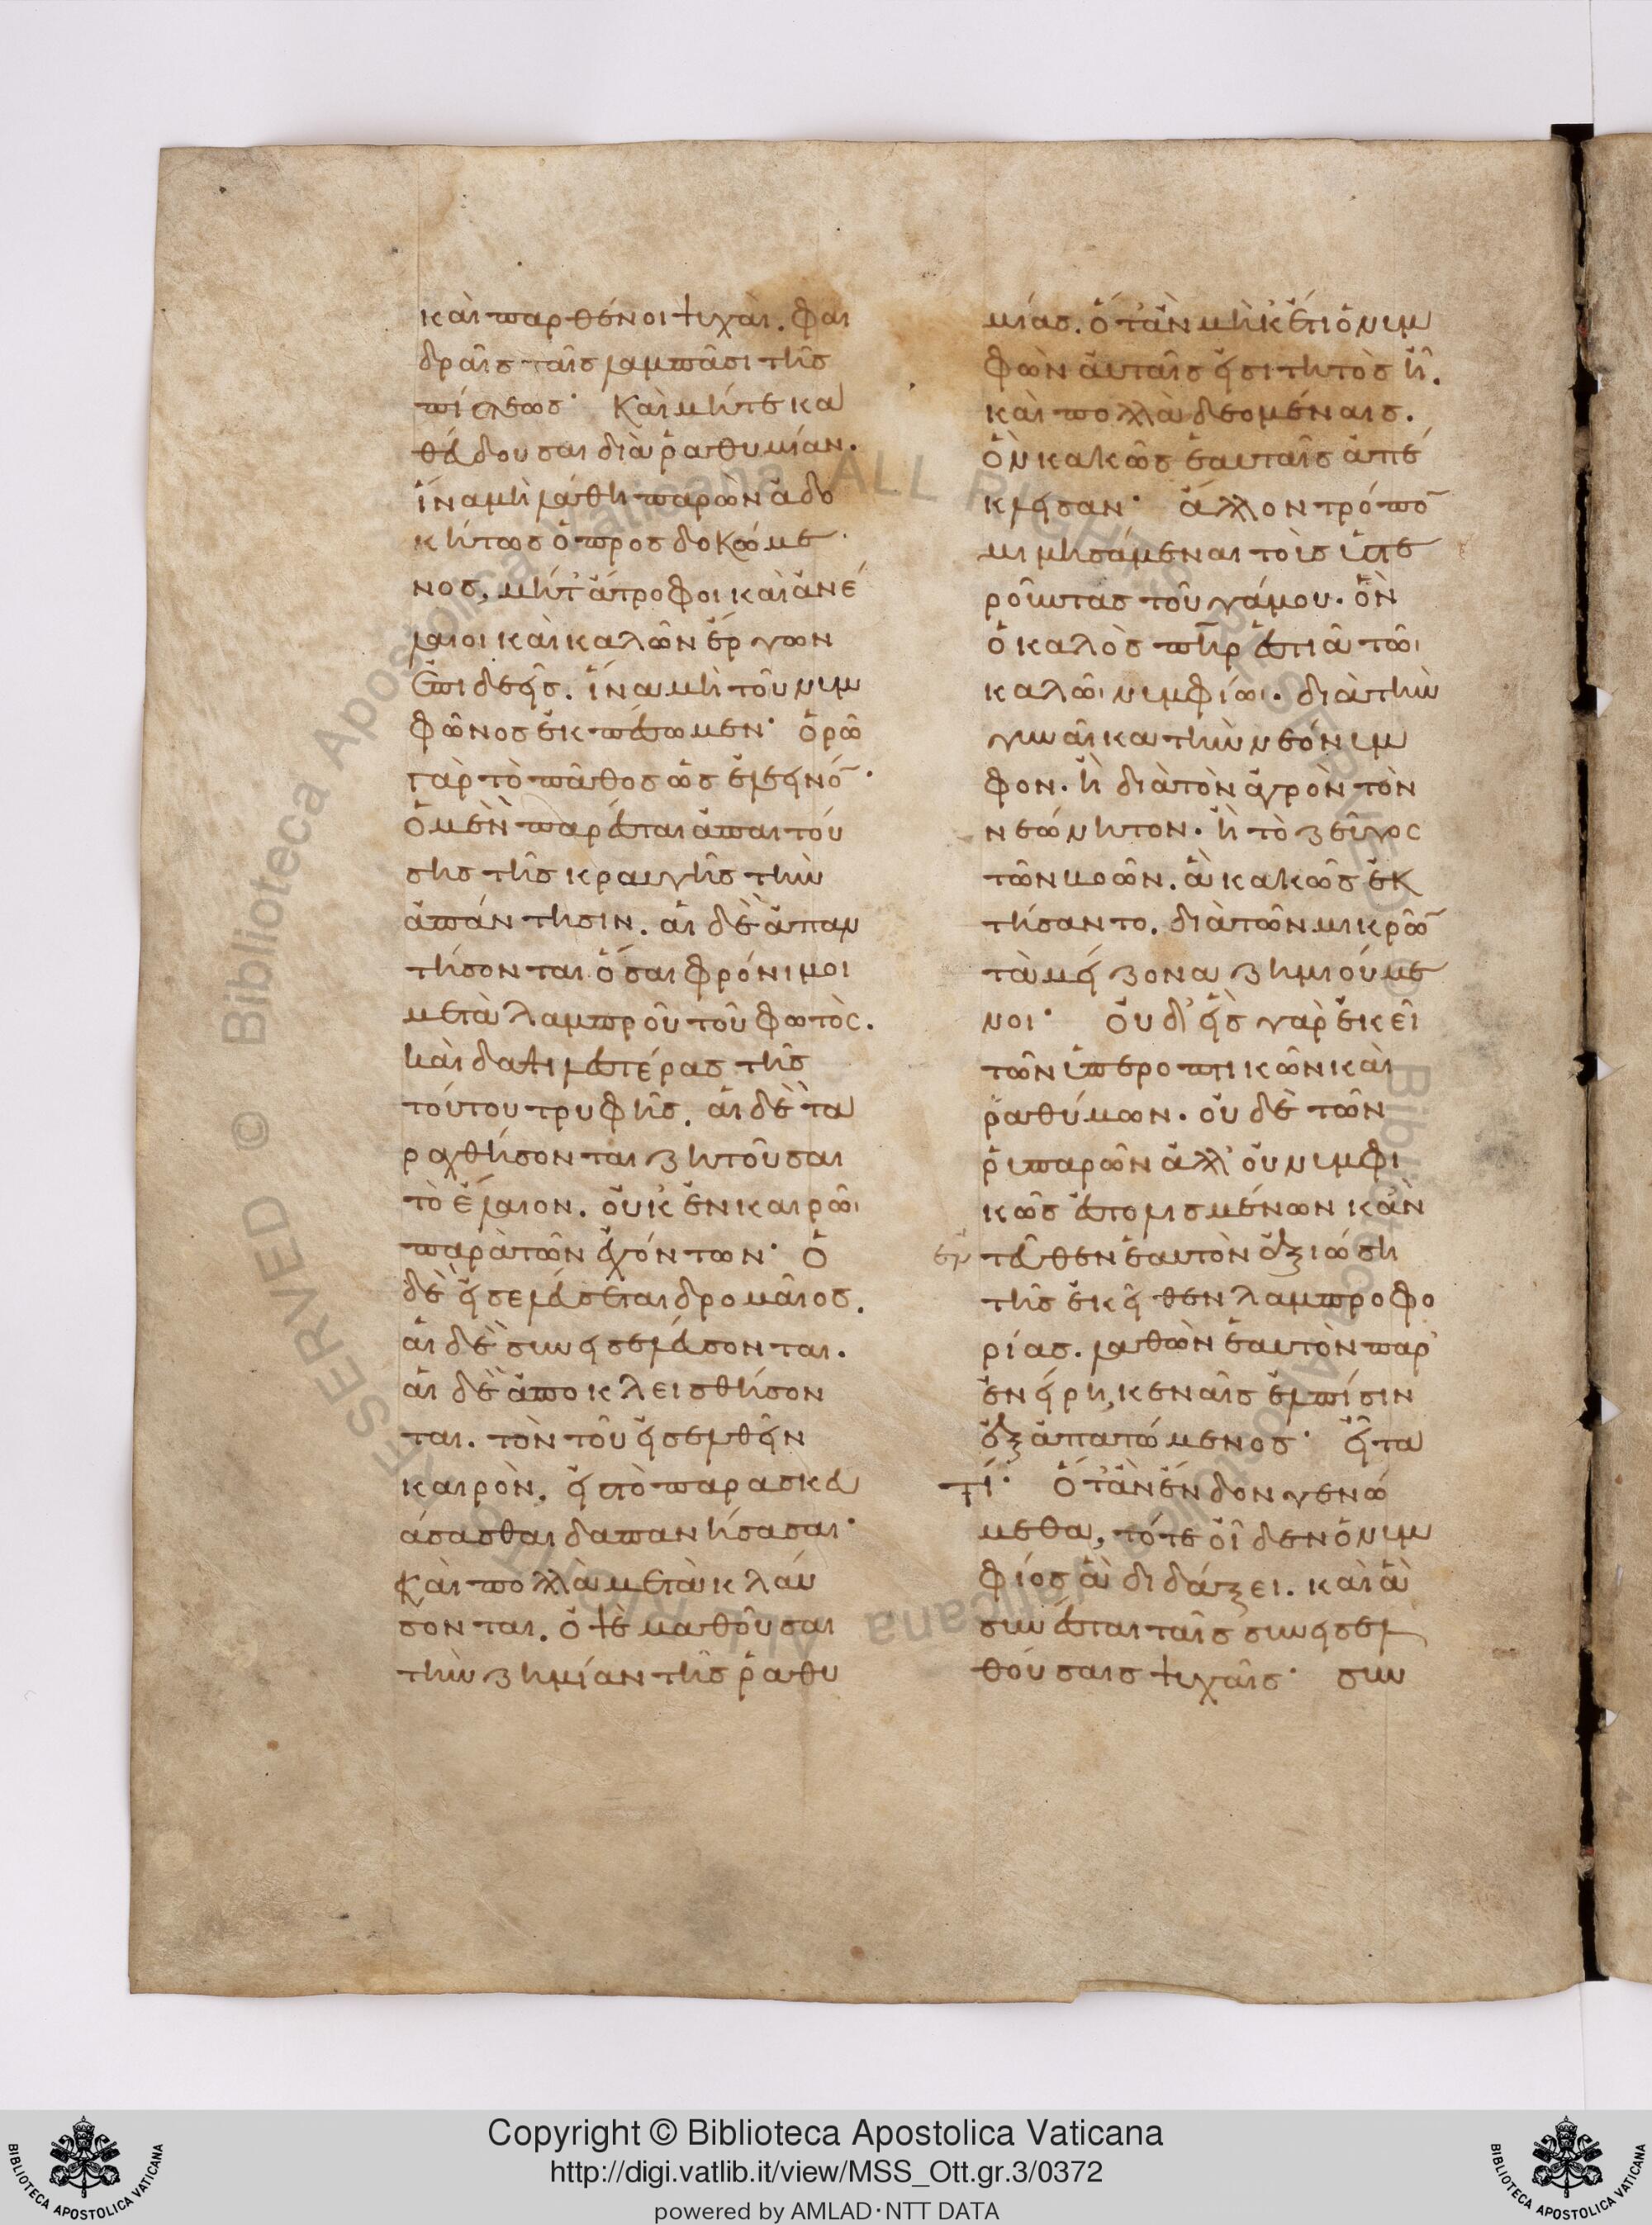 καὶ παρθένοι ψυχαὶ. φαι
δραῖς ταῖς λαμπάσι τῆς
πίστεως· Καὶ μήτε κα
θεύδουσαι διὰ ῥαθυμίαν.
ἵνα μὴ λάθη παρὼν ἀδο
κήτως ὁ προσδοκώμε
νος, μήτ' ἄτροφοι καὶ ἀνέ
λαιοι καὶ καλῶν ἔργων
ἐπιδεεῖς. ἵνα μὴ τοῦ νυμ
φῶνος ἐκπέσωμεν· ὁρῶ
γὰρ τὸ πάθος ὡς ἐλεεινό̄·
ὁ μὲν παρέσται ἀπαιτού
σης τῆς κραυγῆς τὴν
ἀπάντησιν. αἱ δὲ ἀπαν
τήσονται ὅσαι φρόνιμοι
μετὰ λαμπροῦ τοῦ φωτὸς.
καὶ δαψιλεστέρας τῆς
τούτου τρυφῆς. αἱ δὲ τα
ραχθήσονται ζητοῦσαι
τὸ ἔλαιον. οὐκ ἐν καιρῶι
παρὰ τῶν ἐχόντων· Ὁ
δὲ εἰσελεύσεται δρομαῖος.
αἱ δὲ συνεισελεύσονται.
αἱ δὲ ἀποκλεισθήσον
ται. τὸν τοῦ εἰσελθεῖν
καιρὸν. εἰς τὸ παρασκευ
άσασθαι δαπανήσασαι·
Καὶ πολλὰ μετακλαύ
σονται. ὀψὲ μαθοῦσαι
τὴν ζημίαν τῆς ῥαθυ
μίας. ὅταν μηκέτι ὁ νυμ
φὼν αὐταῖς εἰσιτητὸς ἦ.
καὶ πολλὰ δεομέναις.
ὃν κακῶς ἑαυταῖς ἀπέ
κλεισαν· ἄλλον τρόπο̄
μιμησάμεναι τοὺς ὑστε
ροῦντας τοῦ γάμου. ὃν
ὁ καλὸς πη̄ρ ἑστιᾶ τῶι
καλῶι νυμφίωι. διὰ τὴν
γυναῖκα τὴν νεόνυμ
φον. ἢ διὰ τὸν ἀγρὸν τὸν
νεώνητον. ἢ τὸ ζεῦγος
τῶν βοῶν. ἃ κακῶς ἐκ
τήσαντο. διὰ τῶν μικρῶ̄
τὰ μείζονα ζημιούμε
νοι· Οὐδ' εἷς γὰρ ἐκεῖ
τῶν ὑπεροπτικῶν καὶ
ῥαθύμων. οὐδὲ τῶν
ῥυπαρῶν ἀλλ' οὐ νυμφι
κῶς ἐστολισμένων κἂν
ἐν τεῦθεν ἑαυτὸν ἀξιώση
τῆς ἐκεῖθεν λαμπροφο
ρίας. λαθὼν ἑαυτὸν παρ
ενείρη, κεναῖς ἐλπίσιν
ἐξαπατώμενος· εἶτα
τί· Ὅταν ἔνδον γενώ
μεθα, τότε οἶδεν ὁ νυμ
φίος ἃ διδάξει. καὶ ἃ
συνέσται ταῖς συνεισελ
θούσαις ψυχαῖς· συν
Copyright © Biblioteca Apostolica Vaticana
http://digi.vatlib.it/view/MSS_Ott.gr.3/0372
powered by AMLAD·NTT DATA